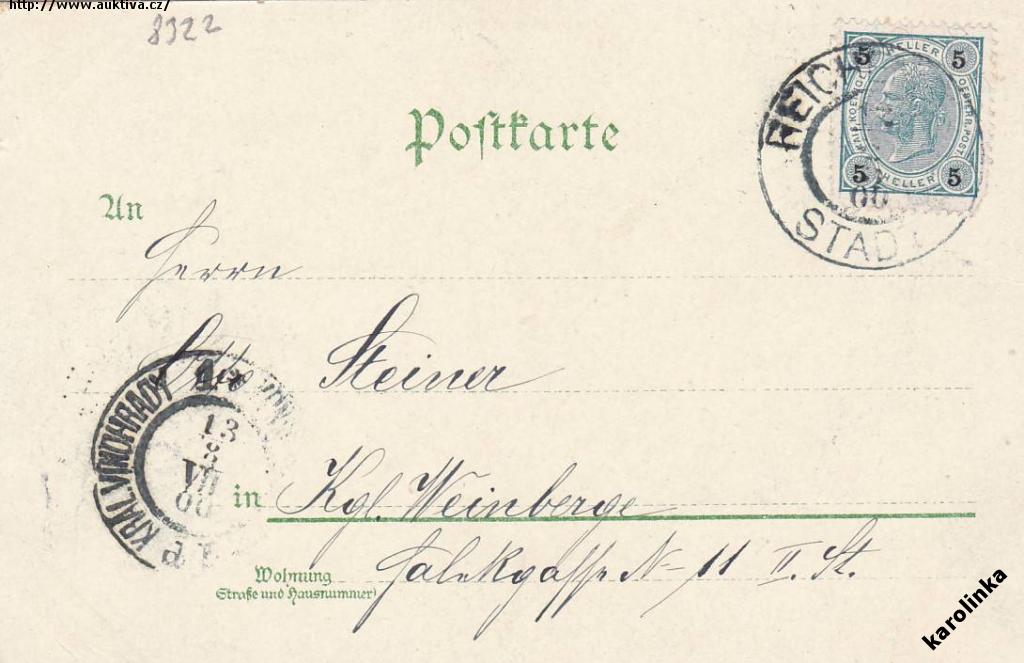 http://www.auktiva.cz/
8322
Postkarte
5 HELLER 5
5 HELLER 5
REICH
STADT
00
An
Herrn
Otto Steiner
KRÁL. VINOHRADY 1
13
8
VII
00
in Kgl. Weinberge
Wohnung
Straße und Hausnummer)
N 11 II. St.
karolinka